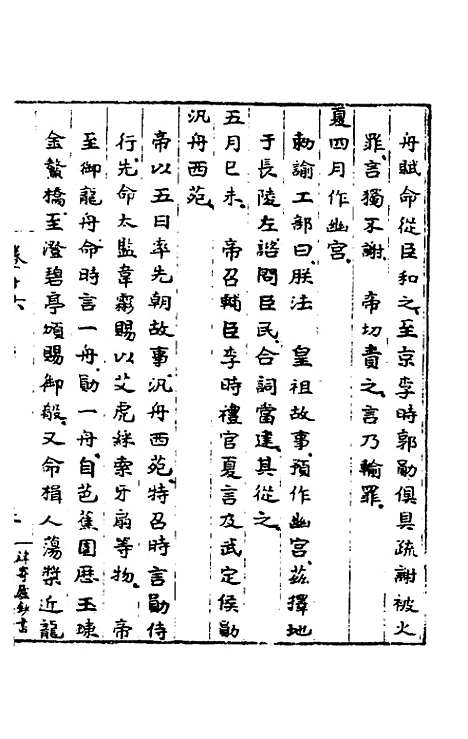 舟賦命從臣和之至京李時郭勛俱具疏謝被火
罪言獨不謝　帝切責之言乃輸罪
夏四月作幽宮
勅諭工部曰朕法　皇祖故事預作幽宮茲擇地
于長陵左諮問臣民合詞當建其從之
五月己未　帝召輔臣李時禮官夏言及武定侯勛
汎舟西苑
帝以五日率先朝故事汎舟西苑特召時言勛侍
行先命太監韋霦賜以艾虎綵索牙扇等物　帝
至御龍舟命時言一舟勛一舟自芭蕉園歷玉
金鰲橋至澄碧亭頒賜御殽又命楫人蕩槳近龍
卷十六